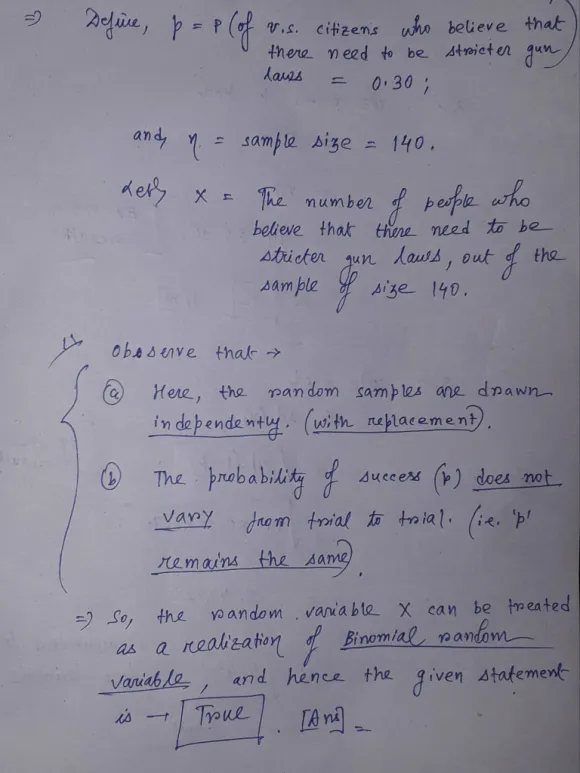 ⇒ Define, p = P (of U.S. citizens who believe that
there need to be stricter gun
laws = 0.30 ;
and, n = sample size = 140.
Let, X = The number of people who
believe that there need to be
stricter gun laws, out of the
sample of size 140.
Observe that →
(a) Here, the random samples are drawn
independently. (with replacement).
(b) The probability of success (p) does not
vary from trial to trial. (i.e. 'p'
remains the same).
⇒ So, the random variable X can be treated
as a realization of Binomial random
variable, and hence the given statement
is → True . [Ans] =